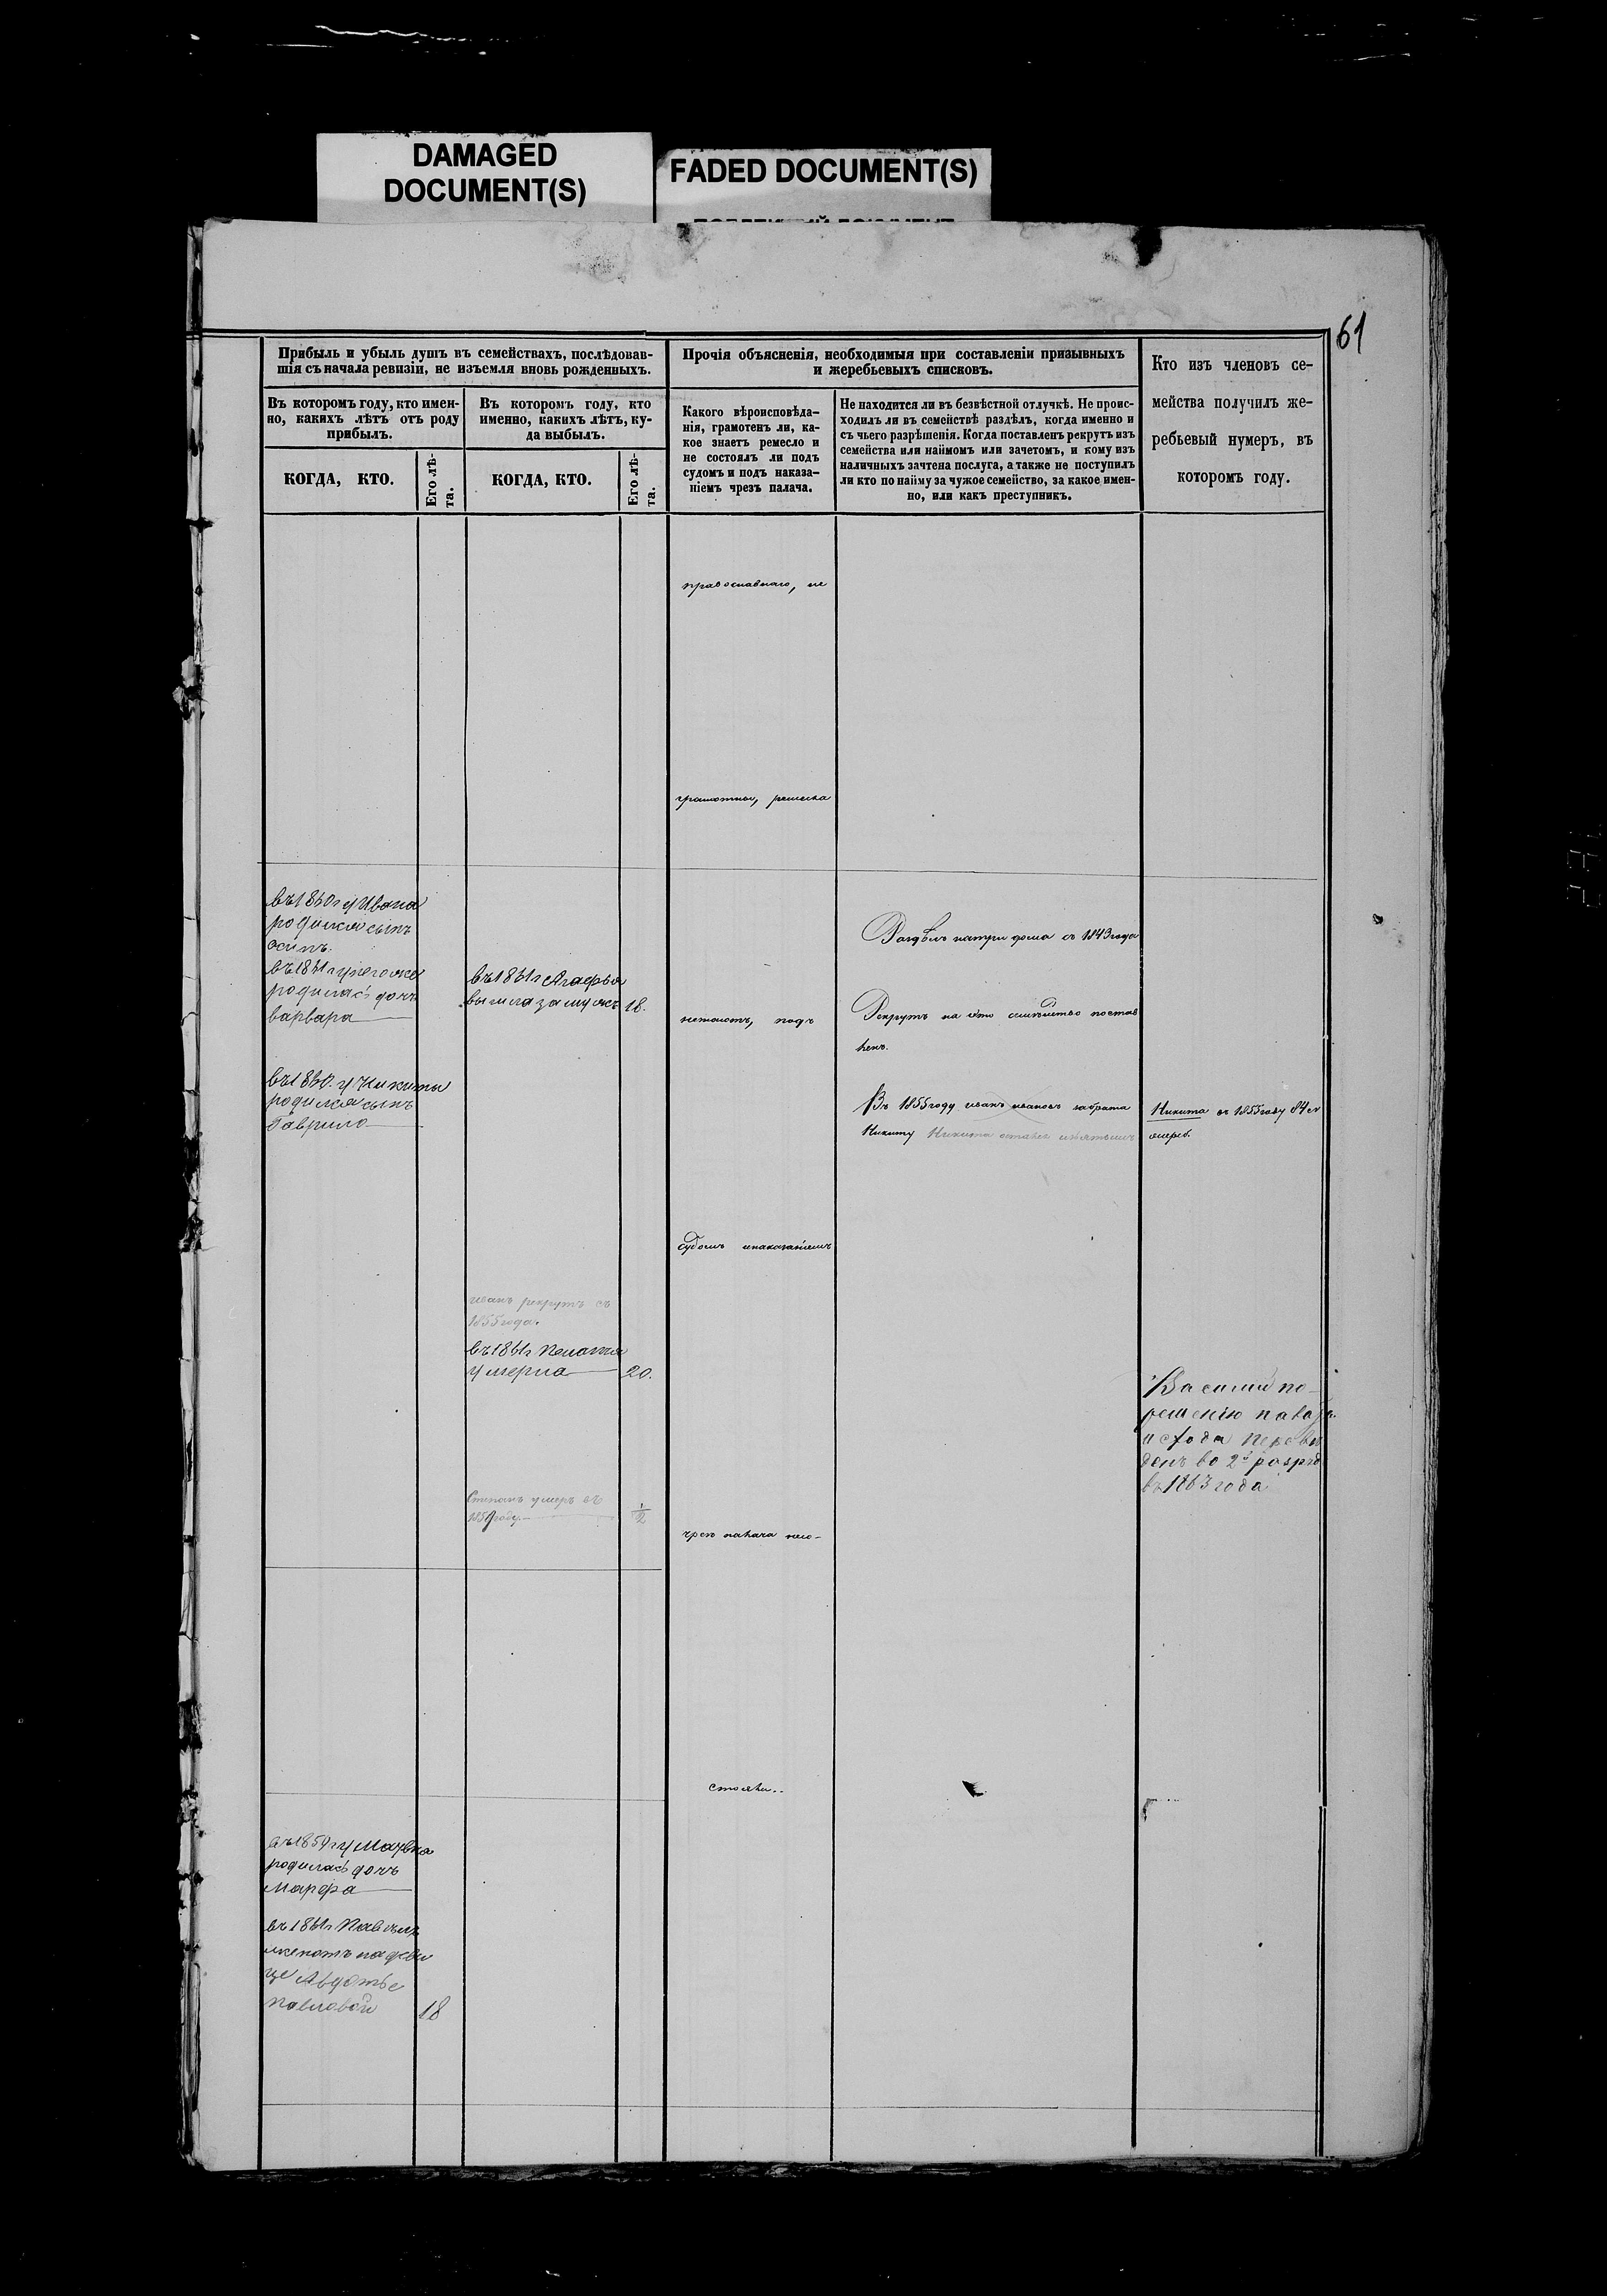 DAMAGED
DOCUMENT(S)
FADED DOCUMENT(S)
61
Прибыль и убыль душъ въ семействахъ, послѣдовав-
шія съ начала ревизіи, не изъемля вновь рожденныхъ.
Прочія объясненія, необходимыя при составленіи призывныхъ
и жеребьевыхъ списковъ.
Кто изъ членовъ се-
мейства получилъ же-
ребьевый нумеръ, въ
которомъ году.
Въ которомъ году, кто имен-
но, какихъ лѣтъ отъ роду
прибылъ.
Въ которомъ году, кто
именно, какихъ лѣтъ, ку-
да выбылъ.
Какого вѣроисповѣда-
нія, грамотенъ ли, ка-
кое знаетъ ремесло и
не состоялъ ли подъ
судомъ и подъ наказа-
ніемъ чрезъ палача.
Не находится ли въ безвѣстной отлучкѣ. Не проис-
ходилъ ли въ семействѣ раздѣлъ, когда именно и
съ чьего разрѣшенія. Когда поставленъ рекрутъ изъ
семейства или наймомъ или зачетомъ, и кому изъ
наличныхъ зачтена послуга, а также не поступилъ
ли кто по найму за чужое семейство, за какое имен-
но, или какъ преступникъ.
КОГДА, КТО.
Его лѣ-
та.
КОГДА, КТО.
Его лѣ-
та.
православнаго, не
грамотны, ремесла
въ 1860 г у Ивана
родился сынъ
осипъ.
въ 1861 г у него же
родилась дочь
варвара
въ 1861 г Агафья
вышла замужъ 18.
Раздѣлъ натри дома съ 1843 года
незнаютъ, подъ
Рекрутъ на это семѣйство постав
ленъ.
въ 1860. у Никиты
родился сынъ
Гаврило
Въ 1855 году иванъ ивановъ забрата
Никиту Никита остался
Никита въ 1855 году 84 м
жереб.
судомъ инаказаніемъ
иванъ рекрутъ съ
1855 года.
въ 1861 г Пелагея
умерла 20.
Василий по
решению
и схода переве
денъ во 2й розряд
въ 1863 года
Степанъ умеръ въ
1859 году. 1/2
чрезъ палача несо-
стояли..
въ 1859 г у Матвѣя
родилась дочь
Марфа
въ 1861 г Павелъ
женатъ на деви
це Авдотье
Павловой 18